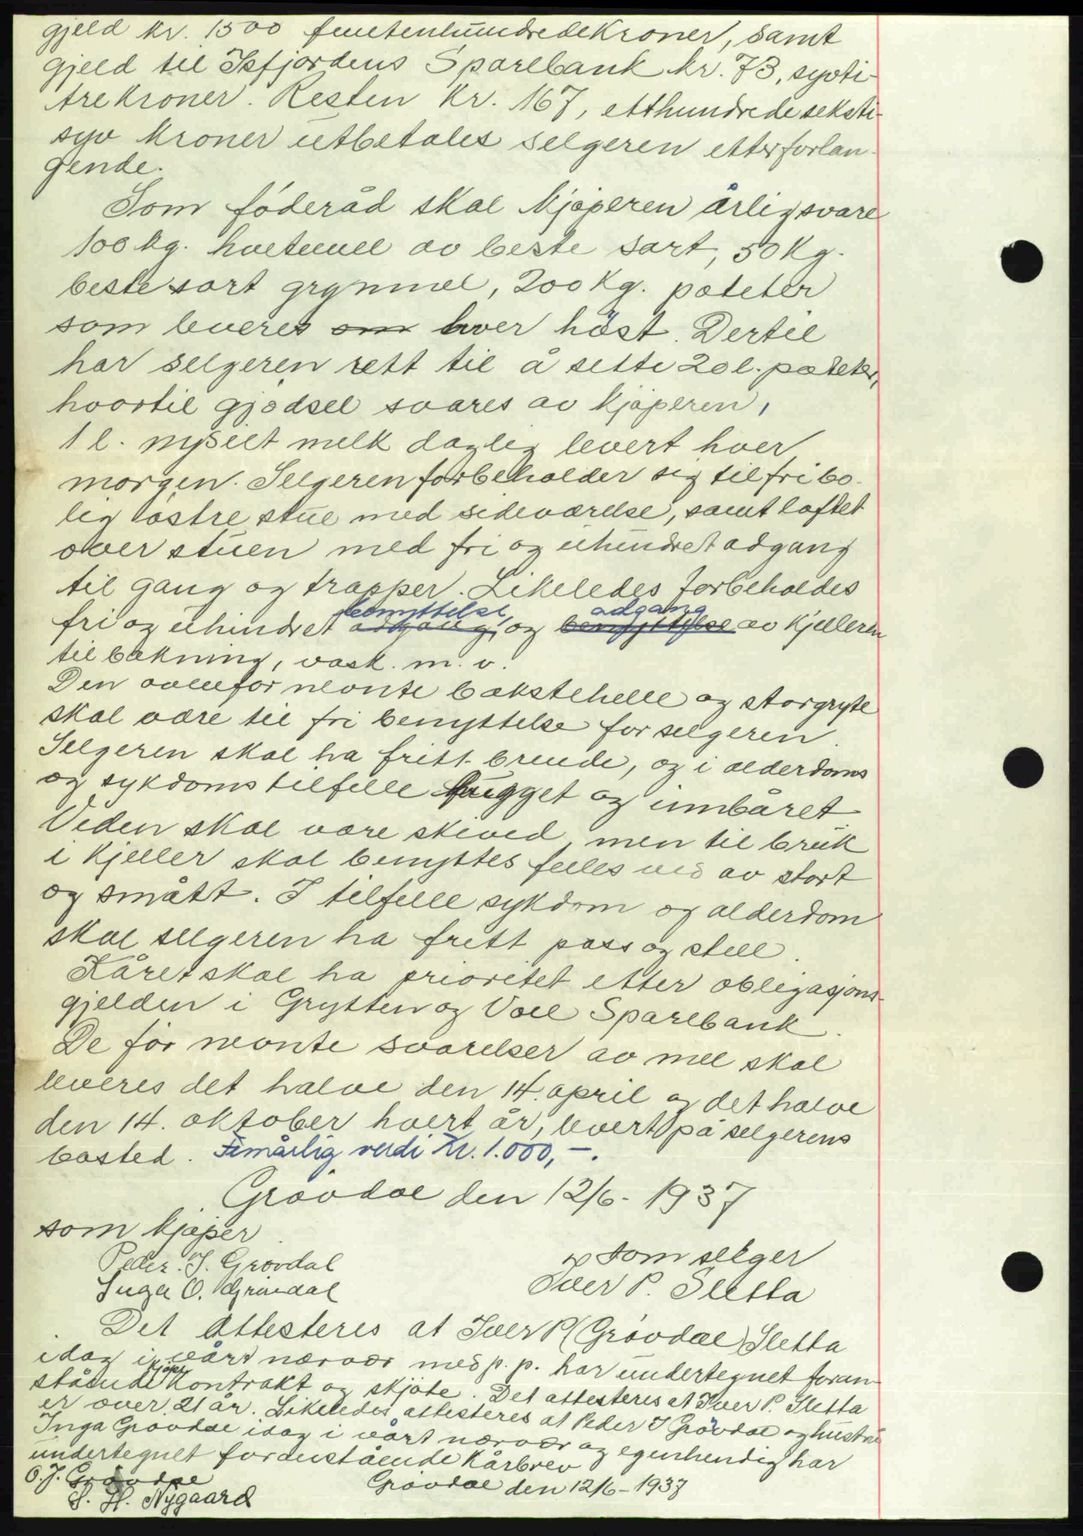 gjeld kr. 1500 femtenhundredekroner, samt
gjeld til Isfjordens Sparebank kr. 73, sytti-
trekroner. Resten kr. 167, etthundredeseksti-
syv kroner utbetales selgeren etter forlan-
gende.
Som föderåd skal kjøperen årlig svare
100 kg. hvetemel av beste sort, 50 Kg.
beste sort grynmel, 200 Kg. poteter
som leveres om hver høst. Dertil
har selgeren rett til å sette 20 l. poteter,
hvortil gjødsel svares av kjøperen,
1 l. nysilt melk daglig levert hver
morgen. Selgeren forbeholder sig til fri bo-
lig østre stue med sideværelse, samt loftet
over stuen med fri og uhindret adgang
til gang og trapper. Likeledes forbeholdes
benyttelse, adgang
fri og uhindret adgang, og benyttelse av kjelleren
til bakning, vask. m. v.
Den ovenfor nevnte bakstehelle og storgryte
skal være til fri benyttelse for selgeren.
Selgeren skal ha fritt brende, og i alderdoms
og sykdomstilfelle hugget og innbåret.
Veden skal være skived, men til bruk
i kjeller skal benyttes felles ved av stort
og smått. I tilfelle sykdom og alderdom
skal selgeren ha fritt pass og stell.
Kåret skal ha prioritet etter obligasjons-
gjelden i Grytten og Voll Sparebank.
De før nevnte svarelser av mel skal
leveres det halve den 14. april og det halve
den 14. oktober hvert år, levert på selgerens
bosted. Femårlig verdi Kr. 1.000,-.
Grøvdal den 12/6- 1937
som kjøper
som selger
Peder. J. Grøvdal
Iver P. Sletta
Inga O. Grøvdal
Det attesteres at Iver P. (Grøvdal) Sletta
idag i vårt nærvær med p. p. har undertegnet foran-
kjøpe
stående kontrakt og skjøte. Det attesteres at Iver P. Sletta
er over 21 år. Likeledes attesteres at Peder J Grøvdal og hustru
Inga Grøvdal idag i vårt nærvær og egenhendig har
undertegnet foranstående Kårbrev
O. J. Grøvdal
Grøvdal den 12/6- 1937
S. H. Nygaard